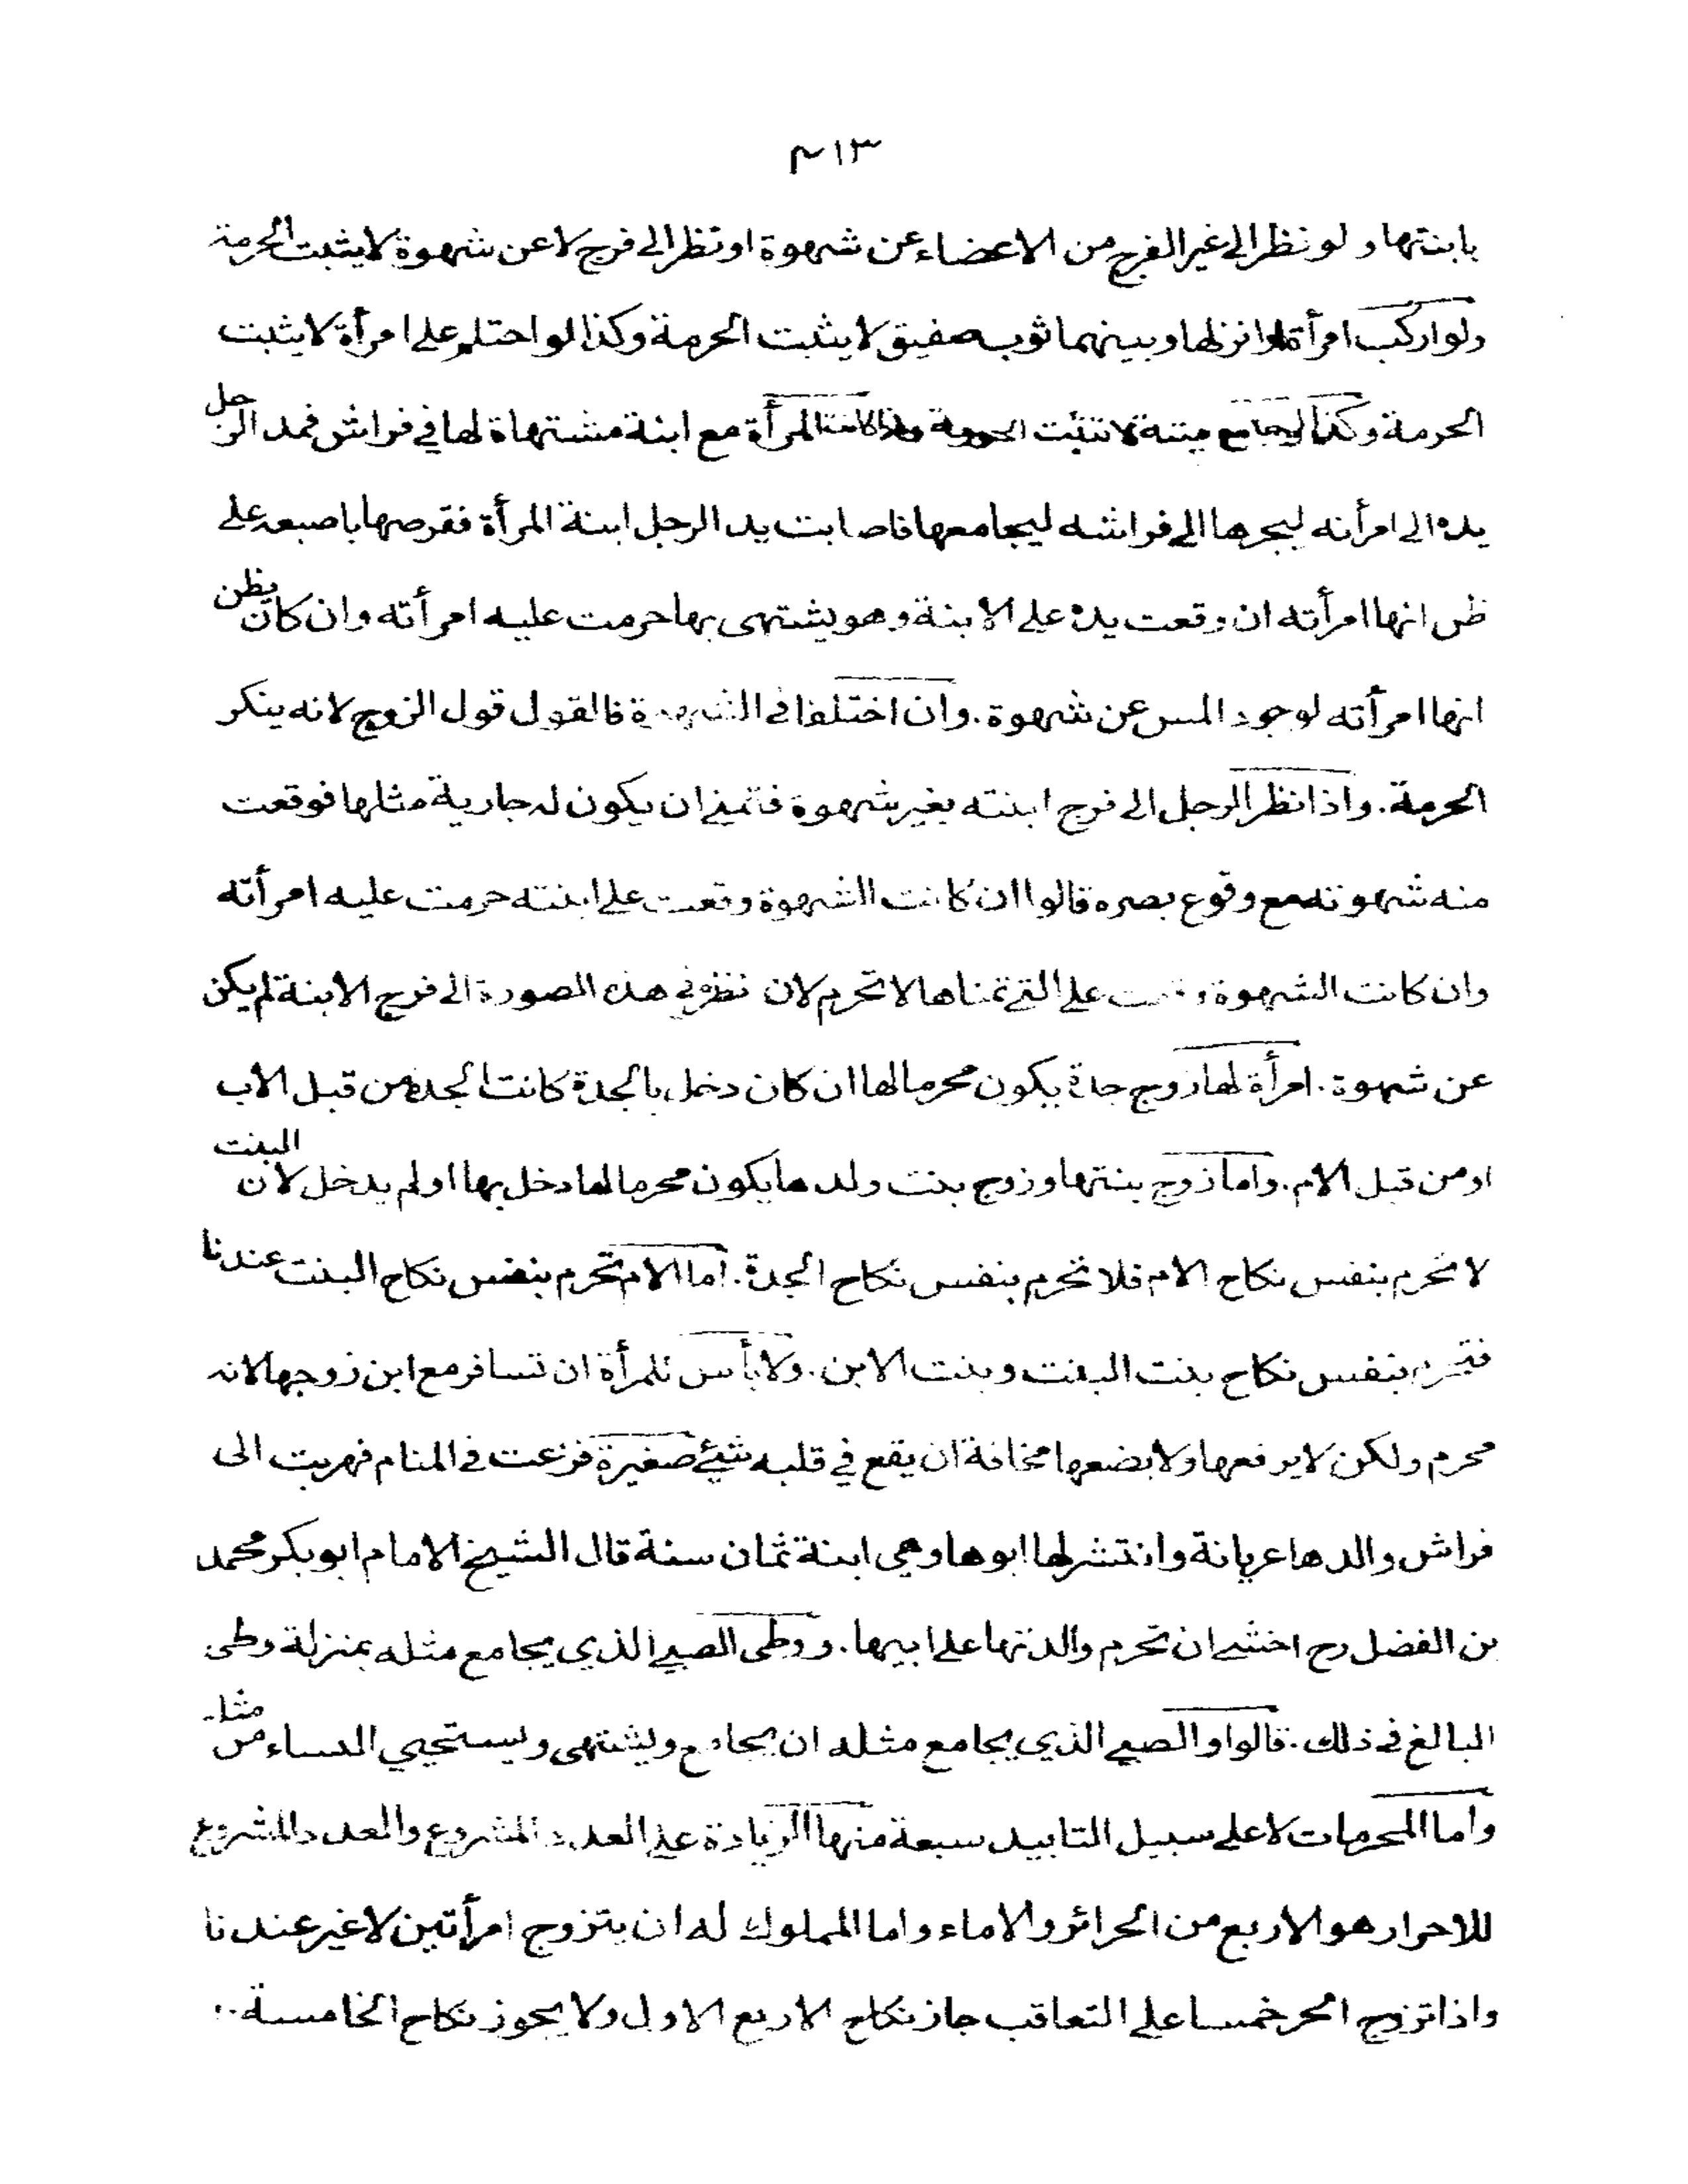 ٣١٣
بابنتها ولو نظر الى غير الفرج من الاعضاء عن شهوة او نظر الى فرج لا عن شهوة لا يثبت الحرمة
ولو اركب امرأة او انزلها وبينهما ثوب صفيق لا يثبت الحرمة وكذا لو احتلم على امرأة لا يثبت
الحرمة وكذا لو جامع ميتة لا تثبت الحرمة واذا كانت المرأة مع ابنة مشتهاة لها في فراش فمد الرجل
يده الى امرأته ليجرها الى فراشه ليجامعها فاصابت يد الرجل ابنة المرأة فقرصها باصبعه على
ظن انها امرأته ان وقعت يده على الابنة وهو يشتهى بها حرمت عليه امرأته وان كان يظن
انها امرأته لوجود المس عن شهوة. وان اختلفا في الشهوة فالقول قول الزوج لانه ينكر
الحرمة. واذا نظر الرجل الى فرج ابنته بغير شهوة فتمنى ان يكون له جارية مثلها فوقعت
منه شهوته مع وقوع بصره قالوا ان كانت الشهوة وقعت على ابنته حرمت عليه امرأته
وان كانت الشهوة وقعت على التي تمناها لا تحرم لان نظره في هذه الصورة الى فرج الابنة لم يكن
عن شهوة. امرأة لها زوج جدة يكون محرما لها ان كان دخل بالجدة كانت الجدة من قبل الاب
او من قبل الام. واما زوج بنتها وزوج بنت ولدها يكون محرما لها دخل بها او لم يدخل لان البنت
لا تحرم بنفس نكاح الام فلا تحرم بنفس نكاح الجدة. اما الام تحرم بنفس نكاح البنت عندنا
فتحرم بنفس نكاح بنت البنت وبنت الابن. ولا بأس للمرأة ان تسافر مع ابن زوجها لانه
محرم ولكن لا يرفعها ولا يضعها مخافة ان يقع في قلبه شيئ صغيرة فزعت في المنام فهربت الى
فراش والدها عريانة وانتشر لها ابوها وهي ابنة ثمان سنة قال الشيخ الامام ابو بكر محمد
بن الفضل رح اخشى ان تحرم والدتها على ابيها. ووطى الصبي الذي يجامع مثله بمنزلة وطى
البالغ في ذلك. قالوا والصبي الذي يجامع مثله ان يجامع ويشتهى ويستحيي النساء من مثله
واما المحرمات لا على سبيل التابيد سبعة منها الزيادة على العدد المشروع والعدد المشروع
للاحرار هو الاربع من الحرائر والاماء واما المملوك له ان يتزوج امرأتين لا غير عندنا
واذا تزوج الحر خمسا على التعاقب جاز نكاح الاربع الاول ولا يجوز نكاح الخامسة..